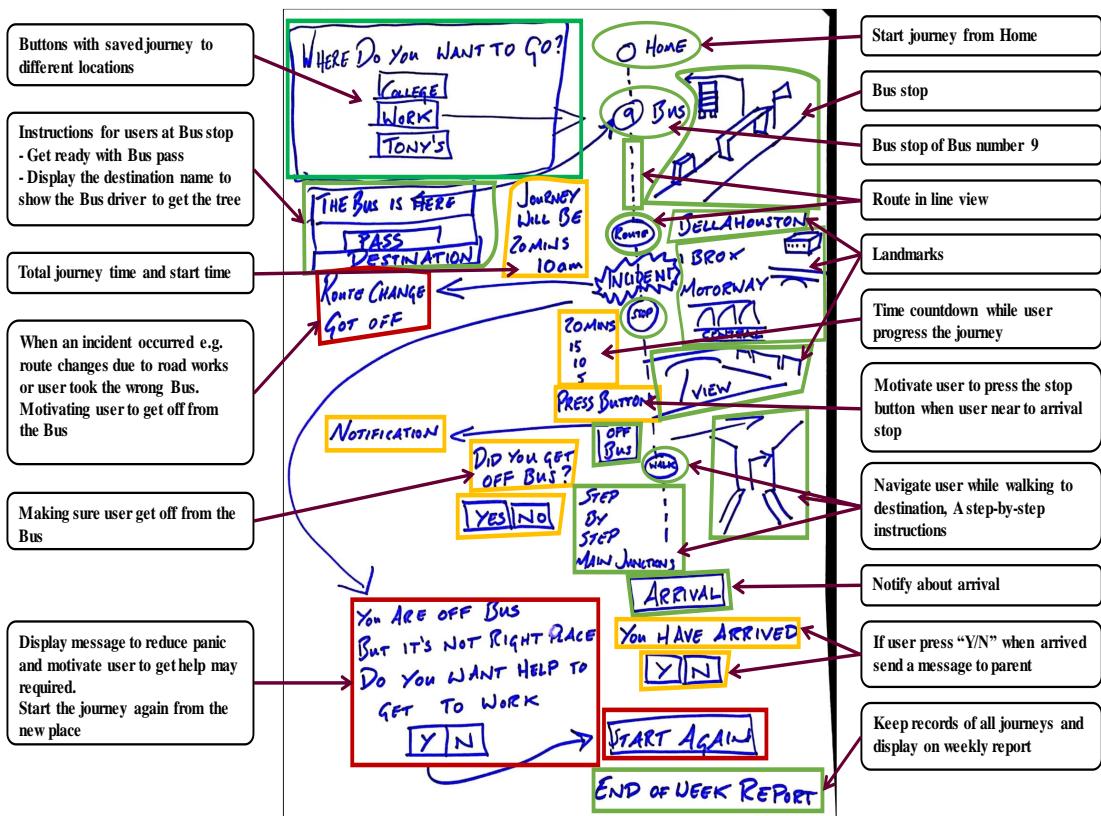 Buttons with saved journey to
different locations
Instructions for users at Bus stop
- Get ready with Bus pass
- Display the destination name to
show the Bus driver to get the tree
Total journey time and start time
When an incident occurred e.g.
route changes due to road works
or user took the wrong Bus.
Motivating user to get off from
the Bus
Making sure user get off from the
Bus
Display message to reduce panic
and motivate user to get help may
required.
Start the journey again from the
new place
WHERE DO YOU WANT TO GO?
COLLEGE
WORK
TONY'S
THE BUS IS HERE
PASS
DESTINATION
JOURNEY
WILL BE
20 MINS
10am
ROUTE CHANGE
GOT OFF
HOME
9 BUS
ROUTE
INCIDENT
STOP
DELLAHOUSTON
BROX
MOTORWAY
CENTRAL
20 MINS
15
10
5
VIEW
PRESS BUTTON
NOTIFICATION
OFF
BUS
DID YOU GET
OFF BUS?
YES NO
WALK
STEP
BY
STEP
MAIN JUNCTIONS
ARRIVAL
YOU HAVE ARRIVED
Y N
YOU ARE OFF BUS
BUT IT'S NOT RIGHT PLACE
DO YOU WANT HELP TO
GET TO WORK
Y N
START AGAIN
END OF WEEK REPORT
Start journey from Home
Bus stop
Bus stop of Bus number 9
Route in line view
Landmarks
Time countdown while user
progress the journey
Motivate user to press the stop
button when user near to arrival
stop
Navigate user while walking to
destination, A step-by-step
instructions
Notify about arrival
If user press “Y/N” when arrived
send a message to parent
Keep records of all journeys and
display on weekly report